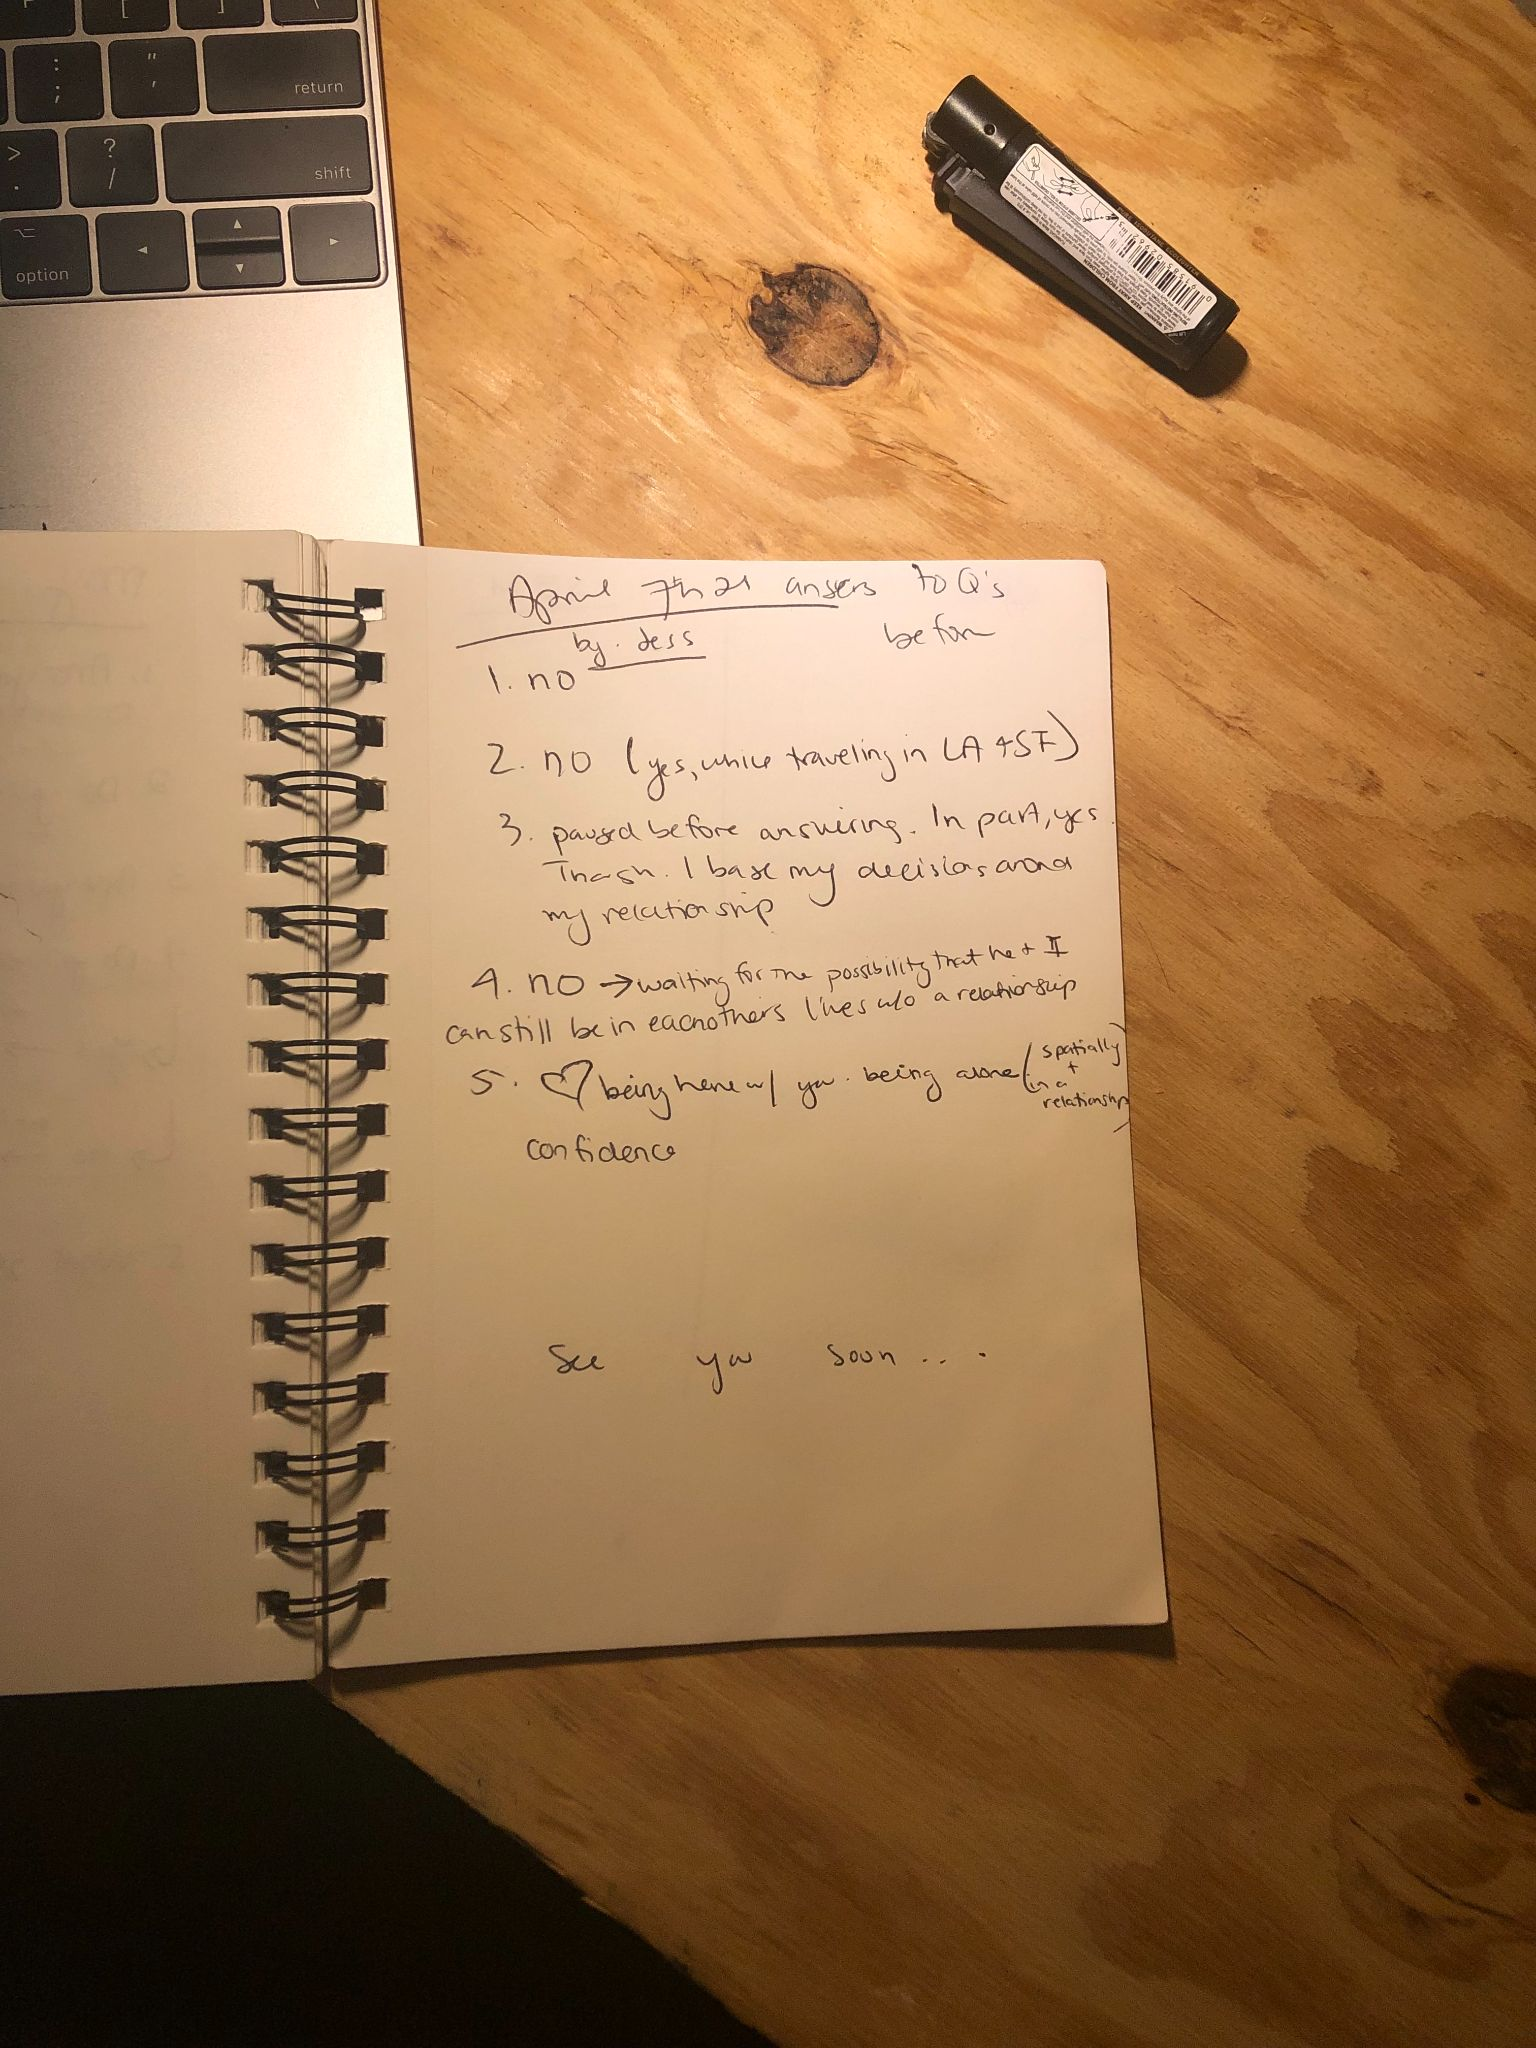 return
shift
option
KEEP AWAY FROM CHILDREN
April 7th 21 ansers to Q's
before
by. dess
1. no
2. no (yes, while traveling in LA + SF)
3. paused before answiring. In part, yes.
I base my decisions around
my relationship
4. no → waiting for the possibility that he + I
can still be in eachothers lives w/o a relationship
5. ♡ being here w/ you. being alone (spatially
+
in a
relationship)
confidence
See you soon ...